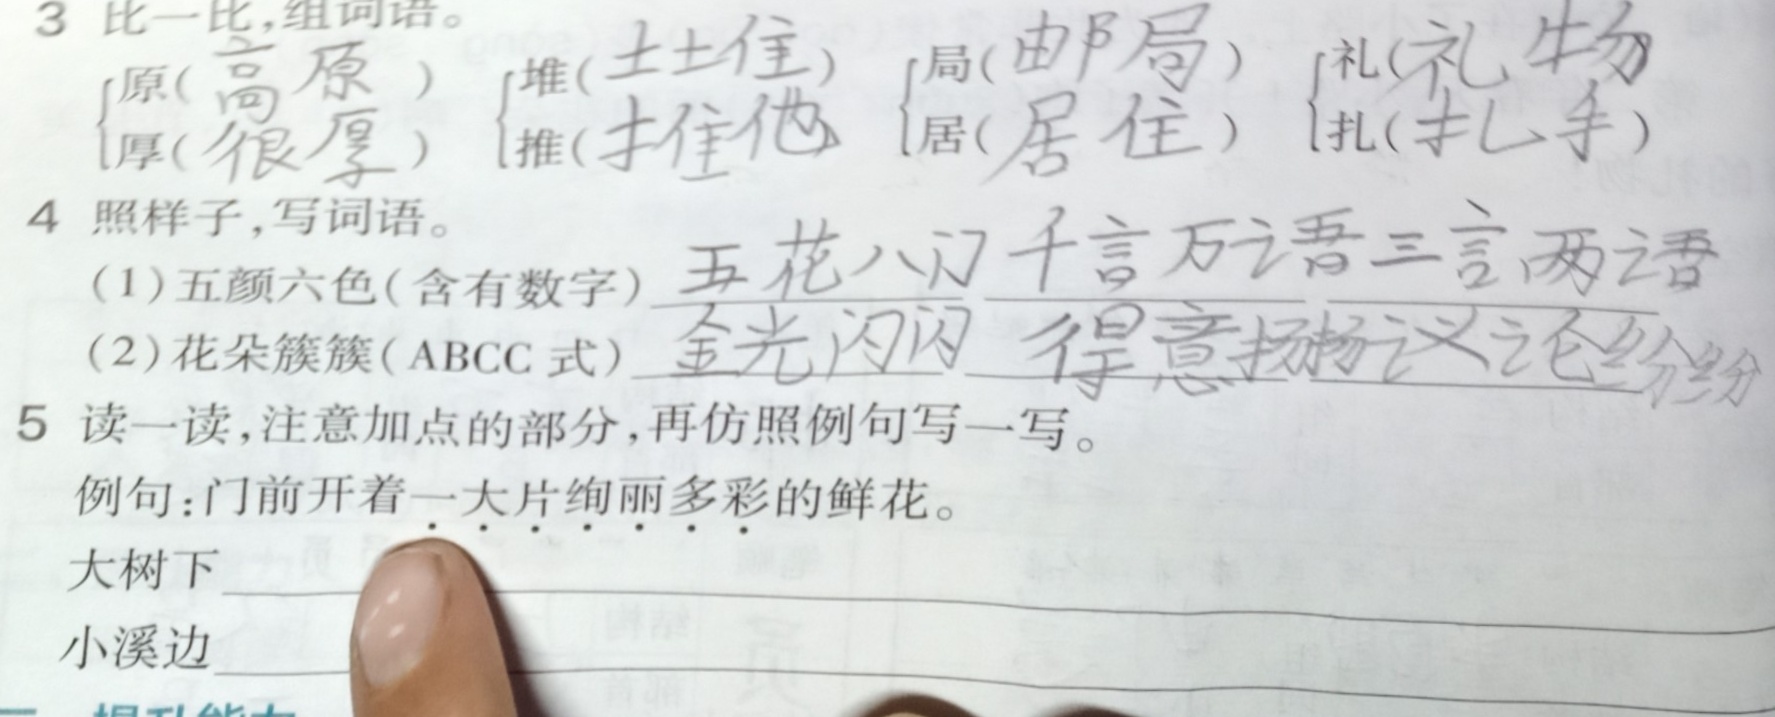 3 比一比,组词语。
原(高原) 堆(土堆) 局(邮局) 礼(礼物
厚(很厚) 推(推他 居(居住) 扎(扎手)
4 照样子,写词语。
(1)五颜六色(含有数字) 五花八门 千言万语 三言两语
(2)花朵簇簇(ABCC 式) 金光闪闪 得意扬扬 议论纷纷
5 读一读,注意加点的部分,再仿照例句写一写。
例句:门前开着一大片绚丽多彩的鲜花。
大树下
小溪边